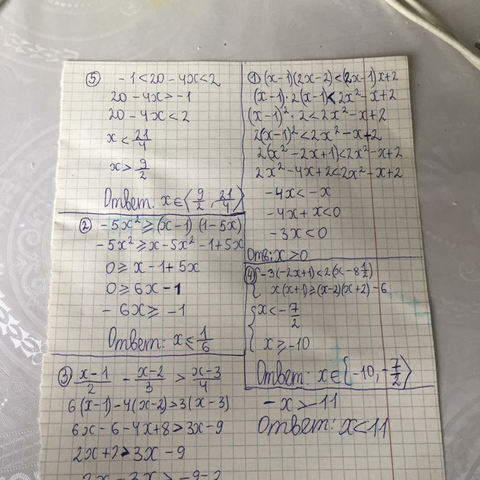 ⑤ -1<20-4x<2
20-4x>-1
20-4x<2
x<21/4
x>9/2
Ответ: x∈⟨9/2, 21/4⟩
② -5x²≥(x-1)(1-5x)
-5x²≥x-5x²-1+5x
0≥x-1+5x
0≥6x-1
-6x≥-1
Ответ: x≤1/6
③ x-1/2 - x-2/3 > x-3/4
6(x-1)-4(x-2)>3(x-3)
6x-6-4x+8>3x-9
2x+2>3x-9
2x-3x>-9-2
① (x-1)(2x-2)<(2x-1)x+2
(x-1)·2(x-1)<2x²-x+2
(x-1)²·2<2x²-x+2
2(x-1)²<2x²-x+2
2(x²-2x+1)<2x²-x+2
2x²-4x+2<2x²-x+2
-4x<-x
-4x+x<0
-3x<0
Отв: x>0
④ {-3(-2x+1)<2(x-8½)
x(x+1)≥(x-2)(x+2)-6
{x<-7/2
x≥-10
Ответ: x∈[-10,-7/2⟩
-x>-11
Ответ: x<11